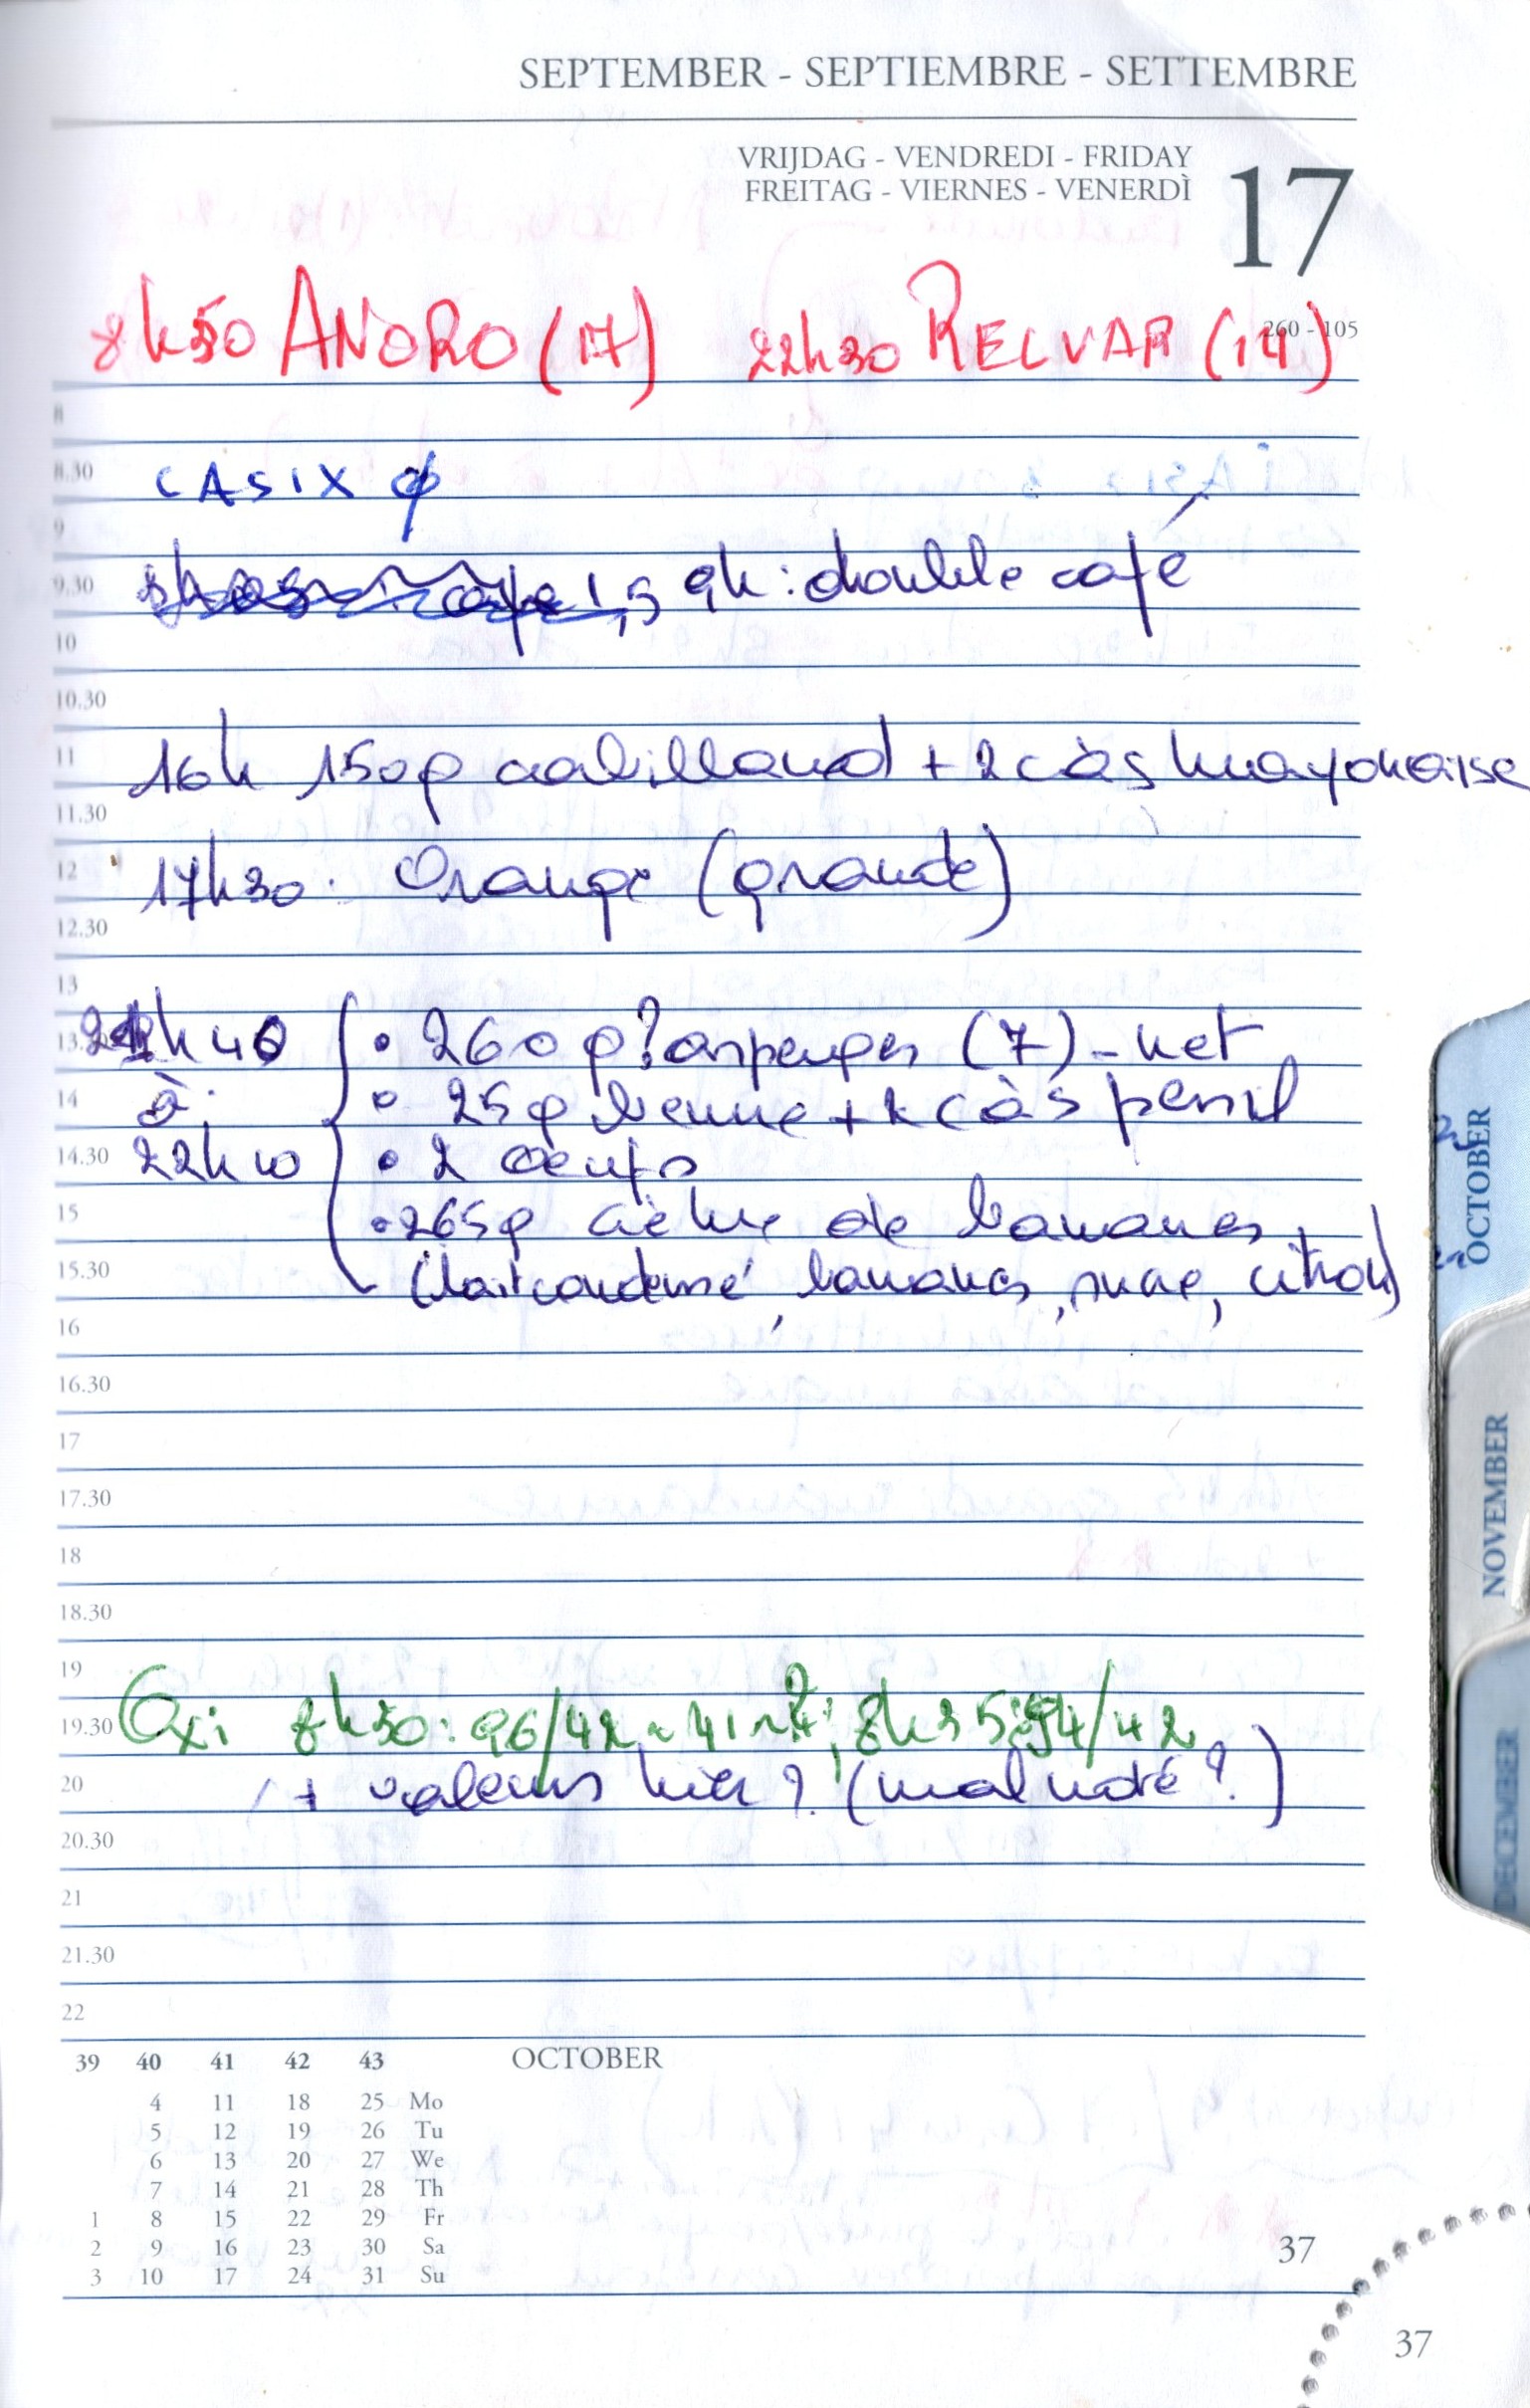 SEPTEMBER - SEPTIEMBRE - SETTEMBRE
VRIJDAG - VENDREDI - FRIDAY
FREITAG - VIERNES - VENERDÌ
17
260 - 105
8h50 ANORO (17) 22h30 RELVAR (14)
8
8.30 CASIX ϕ
9
9.30 9h : double café
10
10.30
11 16h 150g cabillaud + 2 càs mayonaise
11.30
12 17h30 : Orange (grande)
12.30
13
21h40 • 260 g? asperges (7) - net
14 à • 25g beurre + 2 càs persil
14.30 22h10 • 2 oeufs
15 • 265g crème de bananes
15.30 (lait condensé, bananes, sucre, citron)
16
16.30
17
17.30
18
18.30
19
19.30 Oxi 8h30 : 96/42 8h35 : 94/42
20 + valeurs hier ? (mal noté ?)
20.30
21
21.30
22
39 40 41 42 43 OCTOBER
4 11 18 25 Mo
5 12 19 26 Tu
6 13 20 27 We
7 14 21 28 Th
1 8 15 22 29 Fr
2 9 16 23 30 Sa
3 10 17 24 31 Su
37
37
OCTOBER
NOVEMBER
DECEMBER